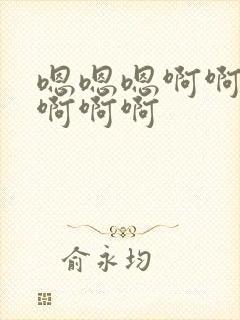 嗯嗯嗯啊啊
啊啊啊
俞永均